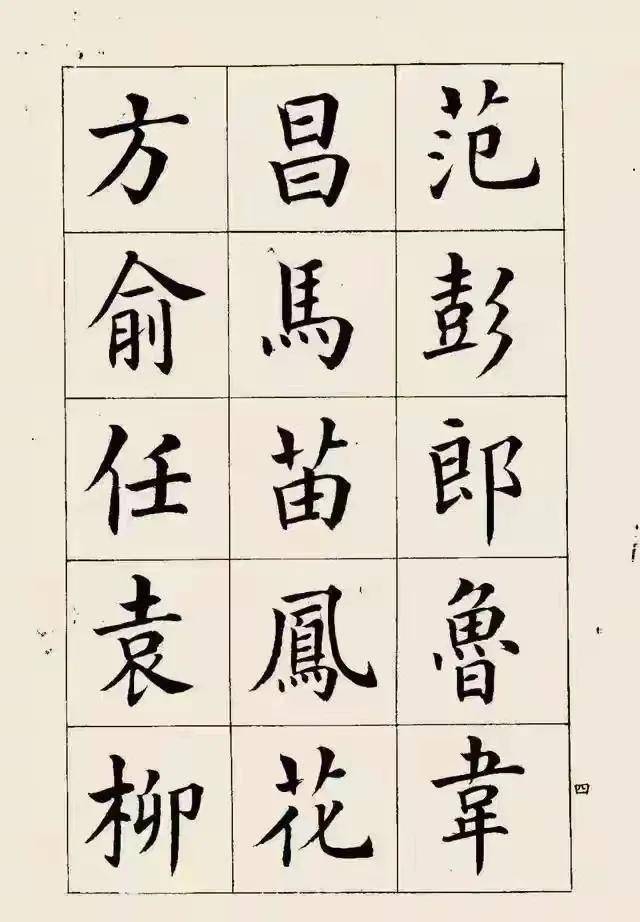 范彭郎魯韋
昌馬苗鳳花
方俞任袁柳
四